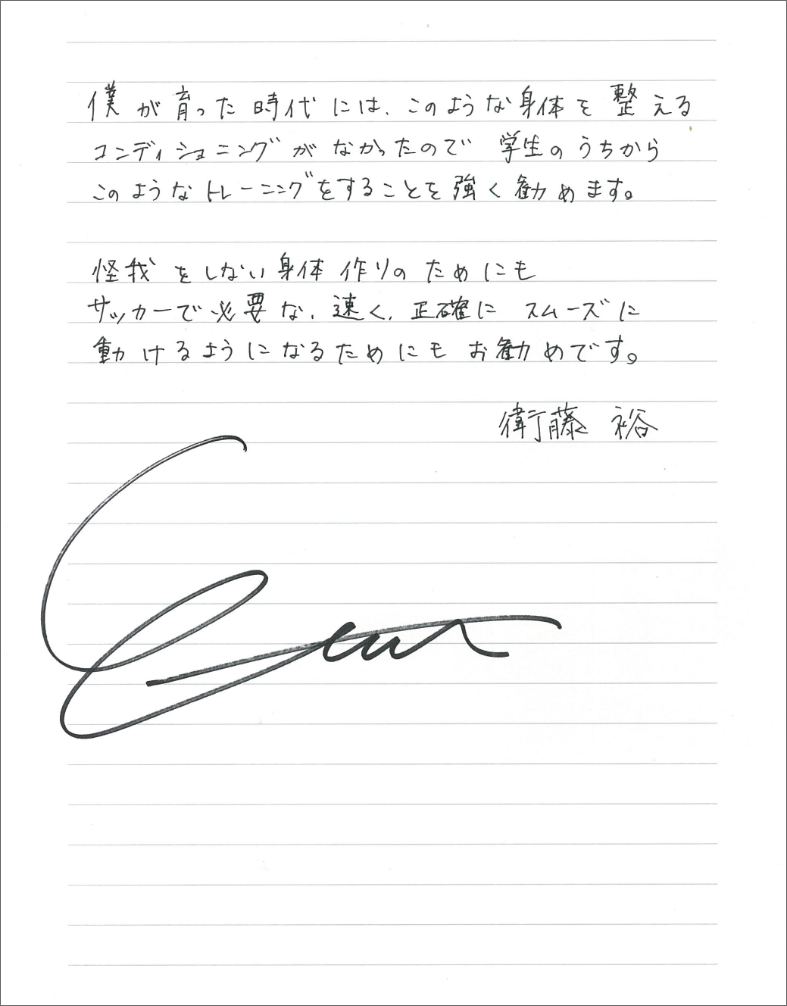 僕が育った時代には、このような身体を整える
コンディショニングがなかったので 学生のうちから
このようなトレーニングをすることを強く勧めます。
怪我をしない身体作りのためにも
サッカーで必要な、速く、正確に スムーズに
動けるようになるためにもお勧めです。
衛藤 裕